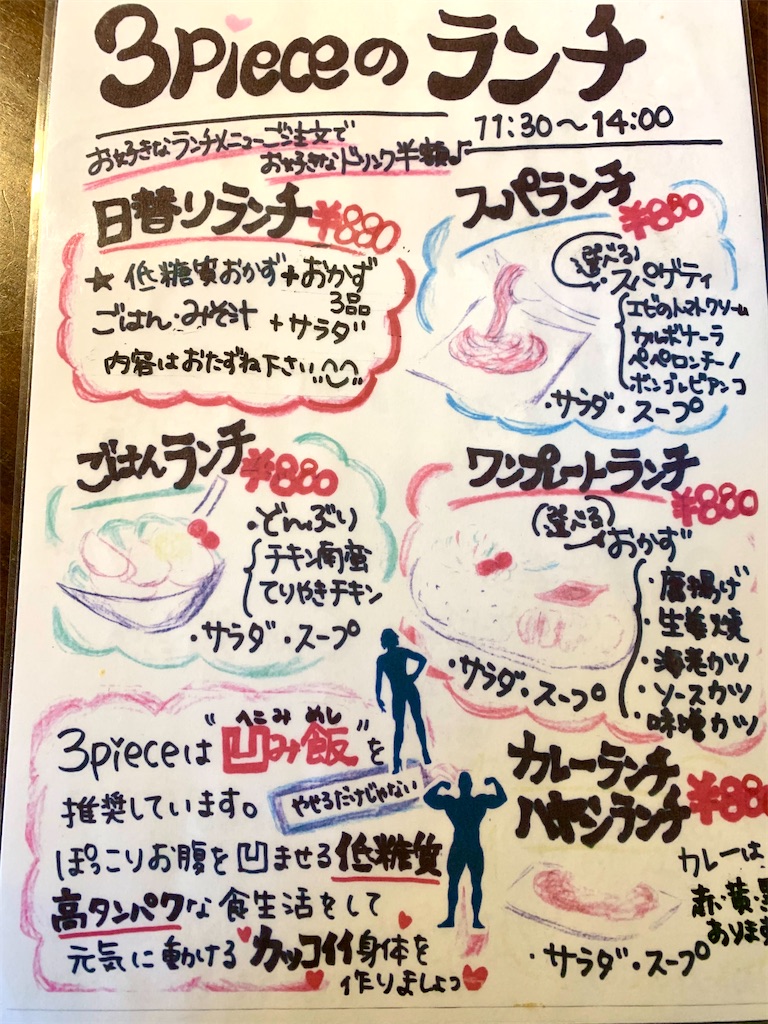 3pieceの ランチ
11:30〜14:00
お好きなランチメニューご注文で
お好きなドリンク半額♪
日替りランチ ¥880
★ 低糖質おかず+おかず
3品
ごはん・みそ汁 +サラダ
内容はおたずね下さい
スパランチ ¥880
(選べる)
・スパゲティ
エビのトマトクリーム
カルボナーラ
ペペロンチーノ
ボンゴレビアンコ
・サラダ・スープ
ごはんランチ ¥880
・どんぶり
チキン南蛮
てりやきチキン
・サラダ・スープ
ワンプレートランチ
¥880
(選べる)
おかず
・唐揚げ
・生姜焼
・海老カツ
・ソースカツ
・味噌カツ
・サラダ・スープ
3pieceは"凹み飯"を
へこみ めし
推奨しています。
やせるだけじゃない
ぽっこりお腹を凹ませる低糖質
高タンパクな食生活をして
元気に動けるカッコイイ身体を
作りましょっ
カレーランチ
ハヤシランチ ¥880
カレーは
赤・黄・黒
あります
・サラダ・スープ